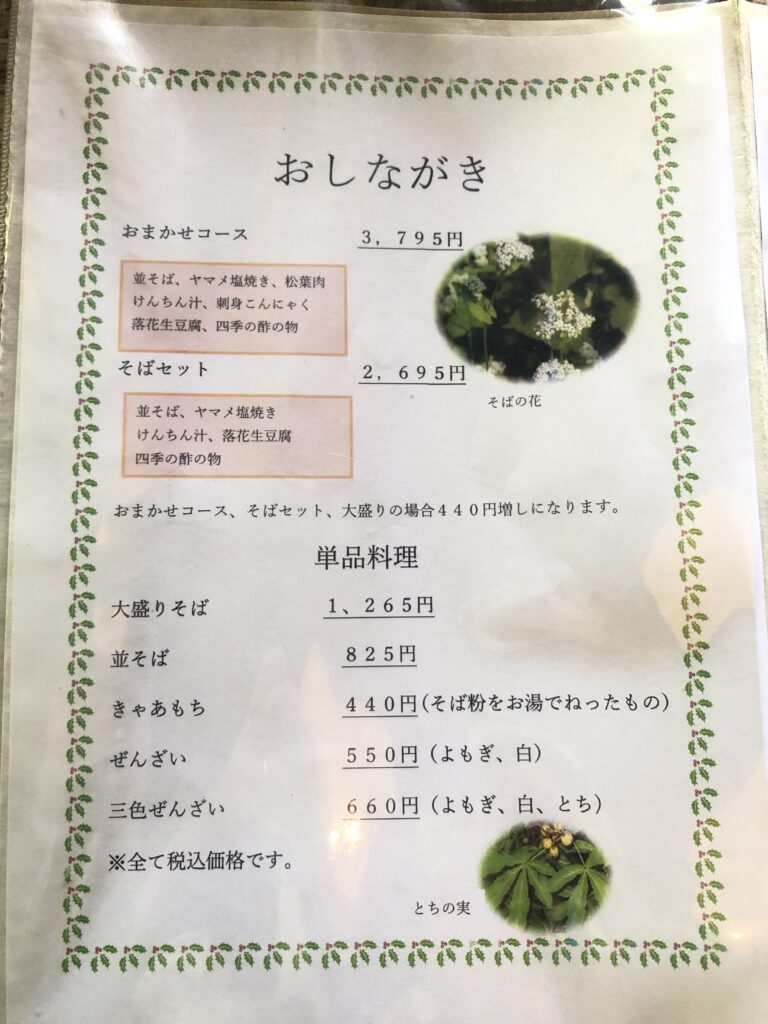 おしながき
おまかせコース 3,795円
並そば、ヤマメ塩焼き、松葉肉
けんちん汁、刺身こんにゃく
落花生豆腐、四季の酢の物
そばセット 2,695円
並そば、ヤマメ塩焼き
けんちん汁、落花生豆腐
四季の酢の物
そばの花
おまかせコース、そばセット、大盛りの場合440円増しになります。
単品料理
大盛りそば 1、265円
並そば 825円
きゃあもち 440円(そば粉をお湯でねったもの)
ぜんざい 550円(よもぎ、白)
三色ぜんざい 660円(よもぎ、白、とち)
※全て税込価格です。
とちの実